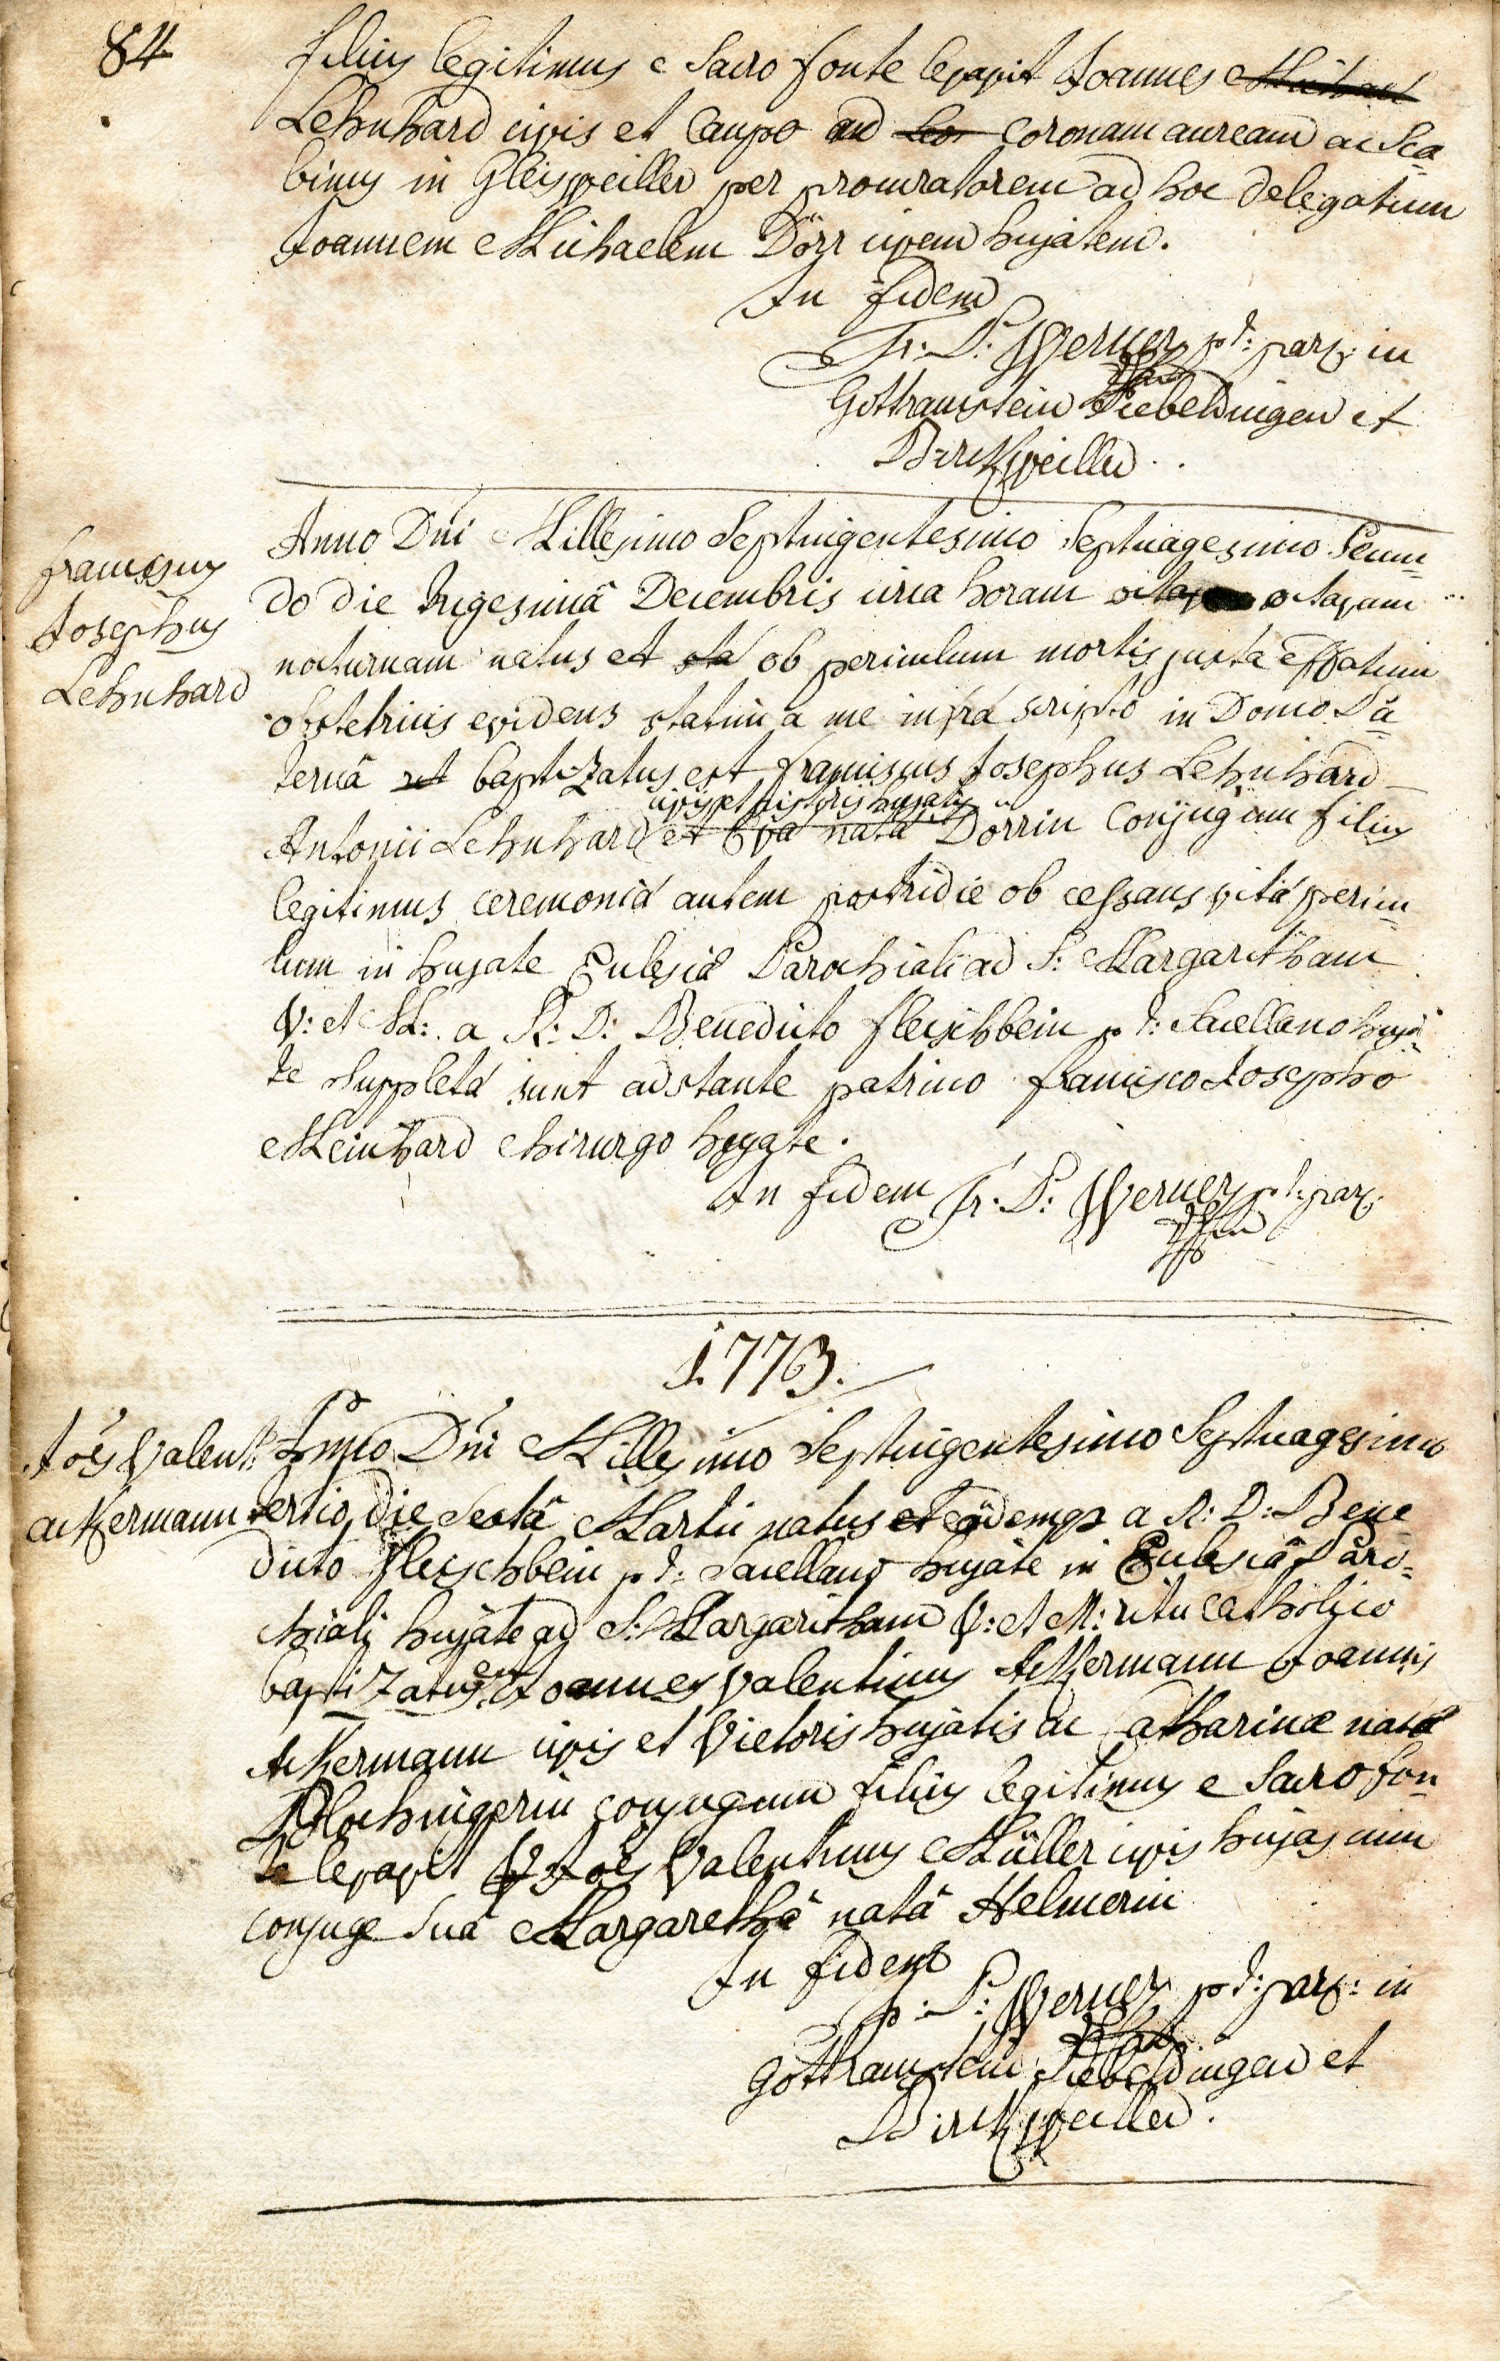 84
filius legitimus e Sacro fonte levavit Joannes Michael
Lehnhard civis et Caupo ad Leo coronam auream ac Sca=
binus in Gleisweiller per procuratorem ad hoc delegatum
Joannem Michaelem Dörr civem hujatem.
In fidem
Fr: P: Werner p t: par: in
Gothramstein Siebeldingen et
Birckweiller.
Franciscus
Josephus
Lehnhard
Anno Dni Millesimo Septingentesimo Septuagesimo Secun=
do die trigesimâ Decembris circa horam octavam
nocturnam natus et ob periculum mortis juxta effatum
obstetricis evidens statim a me infra scripto in Domo Pa=
ternâ et baptizatus est franciscus Josephus Lehnhard
civis et pistoris hujatis
Antonii Lehnhard et Eva nata Dörrin Conjugum filius
legitimus ceremonia autem postridie ob cessans vita pericu=
lum in hujate Ecclesiâ Parochiali ad S: Margaritham
V: et M: a R: D: Benedicto fleischbein p t: Sacellano huja=
te suppleta sunt adstante patrino francisco Josepho
Meinhard chirurgo hujate.
In fidem Fr: P: Werner p t: par:
1773.
Joës Valent:
ackermann
Anno Dni Millesimo Septingentesimo Septuagesimo
tertio, die Sextâ Martii natus et eâdemqs a R: D: Bene
dicto fleischbein p t: Sacellano hujate in Ecclesiâ Paro=
chiali hujate ad S: Margaritham V: et M: ritu Catholico
baptizatus est Joannes Valentinus Ackermann Joannis
Ackermann civis et Vietoris hujatis ac Catharinæ nata
Plochingerin conjugum filius legitimus e Sacro fon=
te levavit Joës Valentinus Müller civis hujas cum
conjuge Suâ Margarethâ natâ Helmerin
In fidem
F: P: Werner p t: par: in
Gothramstein Siebeldingen et
Birckweiller.